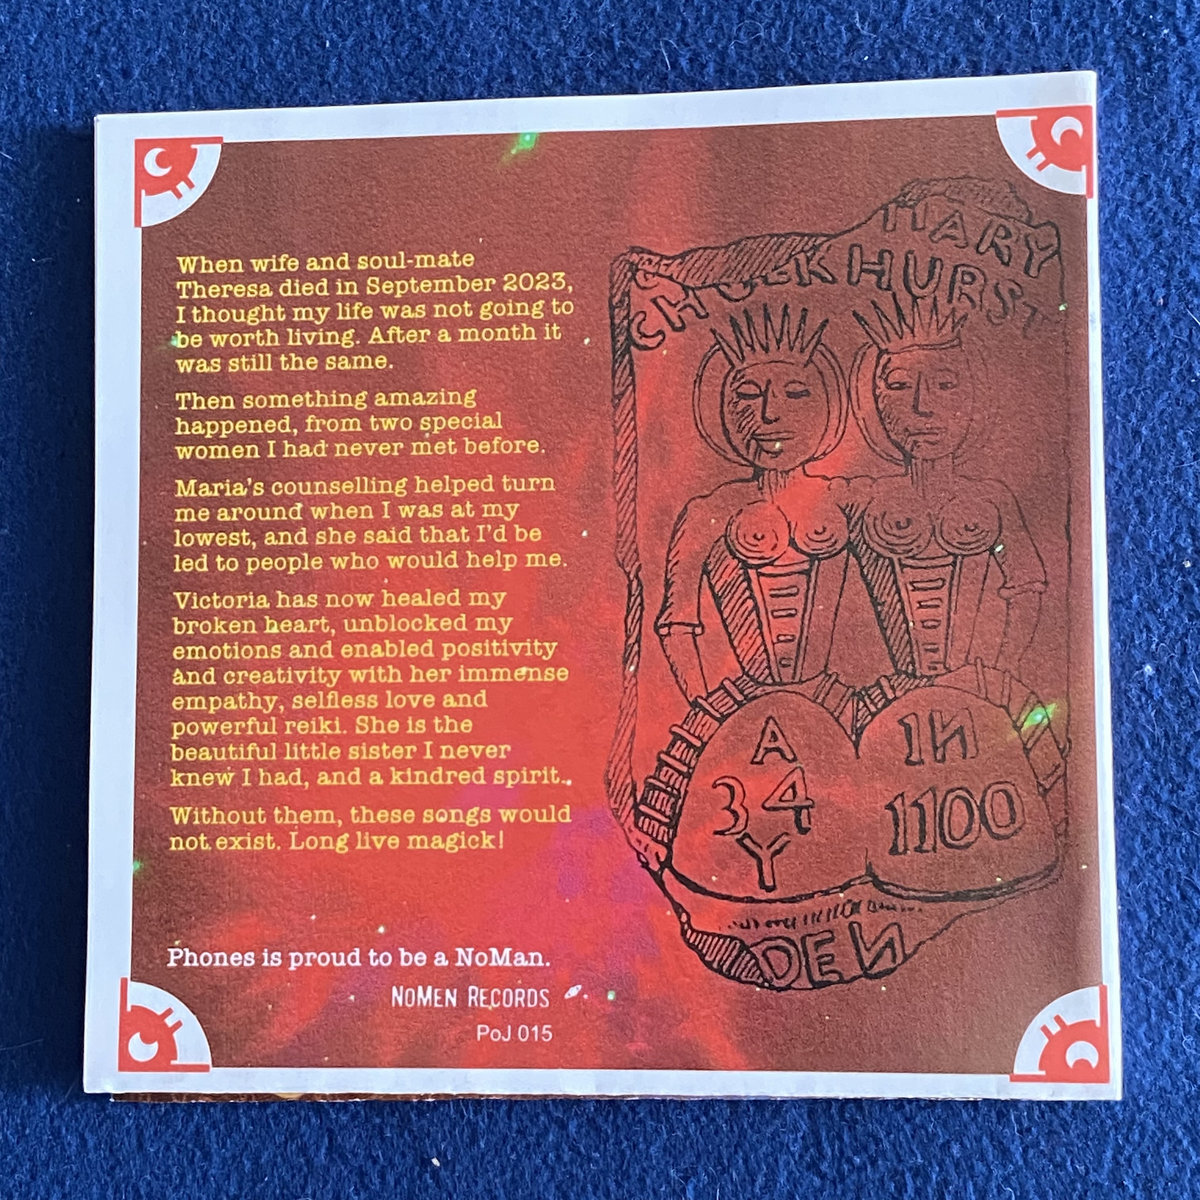 When wife and soul-mate
Theresa died in September 2023,
I thought my life was not going to
be worth living. After a month it
was still the same.
Then something amazing
happened, from two special
women I had never met before.
Maria's counselling helped turn
me around when I was at my
lowest, and she said that I'd be
led to people who would help me.
Victoria has now healed my
broken heart, unblocked my
emotions and enabled positivity
and creativity with her immense
empathy, selfless love and
powerful reiki. She is the
beautiful little sister I never
knew I had, and a kindred spirit.
Without them, these songs would
not exist. Long live magick!
Phones is proud to be a NoMan.
NOMEN RECORDS
PoJ 015
HURST
A
34
Y
IN
1100
DEN